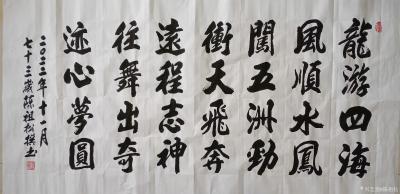 龍游四海
風順水鳳
闖五洲勁
衝天飛奔
遠程志神
往舞出奇
迹心夢圓
二〇二二年十一月
七十三歲陈祖松撰書